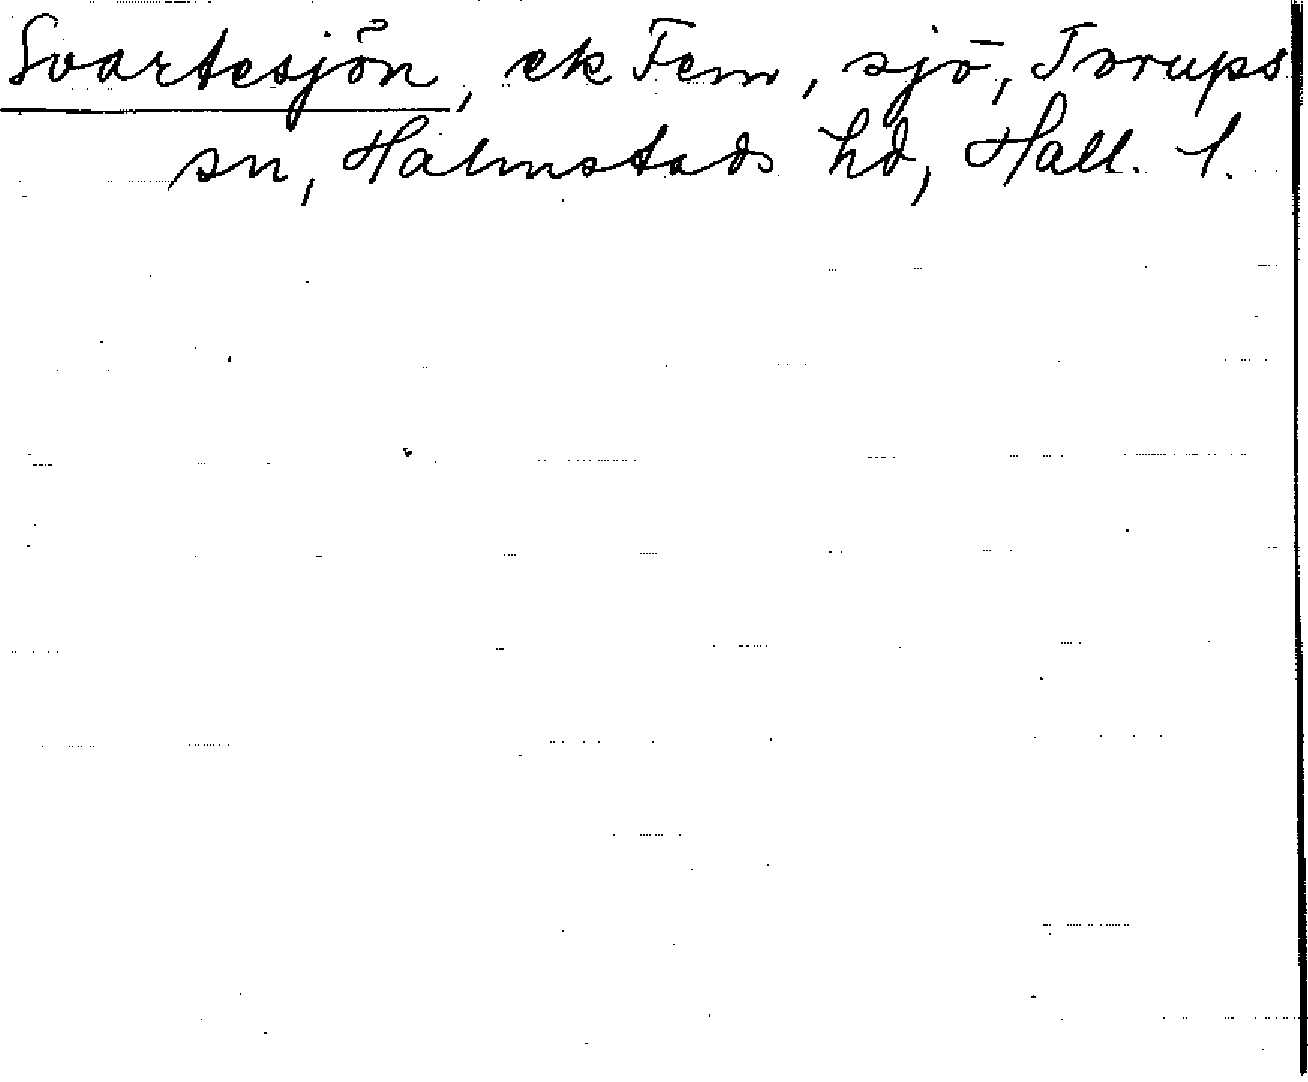 Svartesjön, ek Fem, sjö, Torups
sn, Halmstads hd, Hall. l.